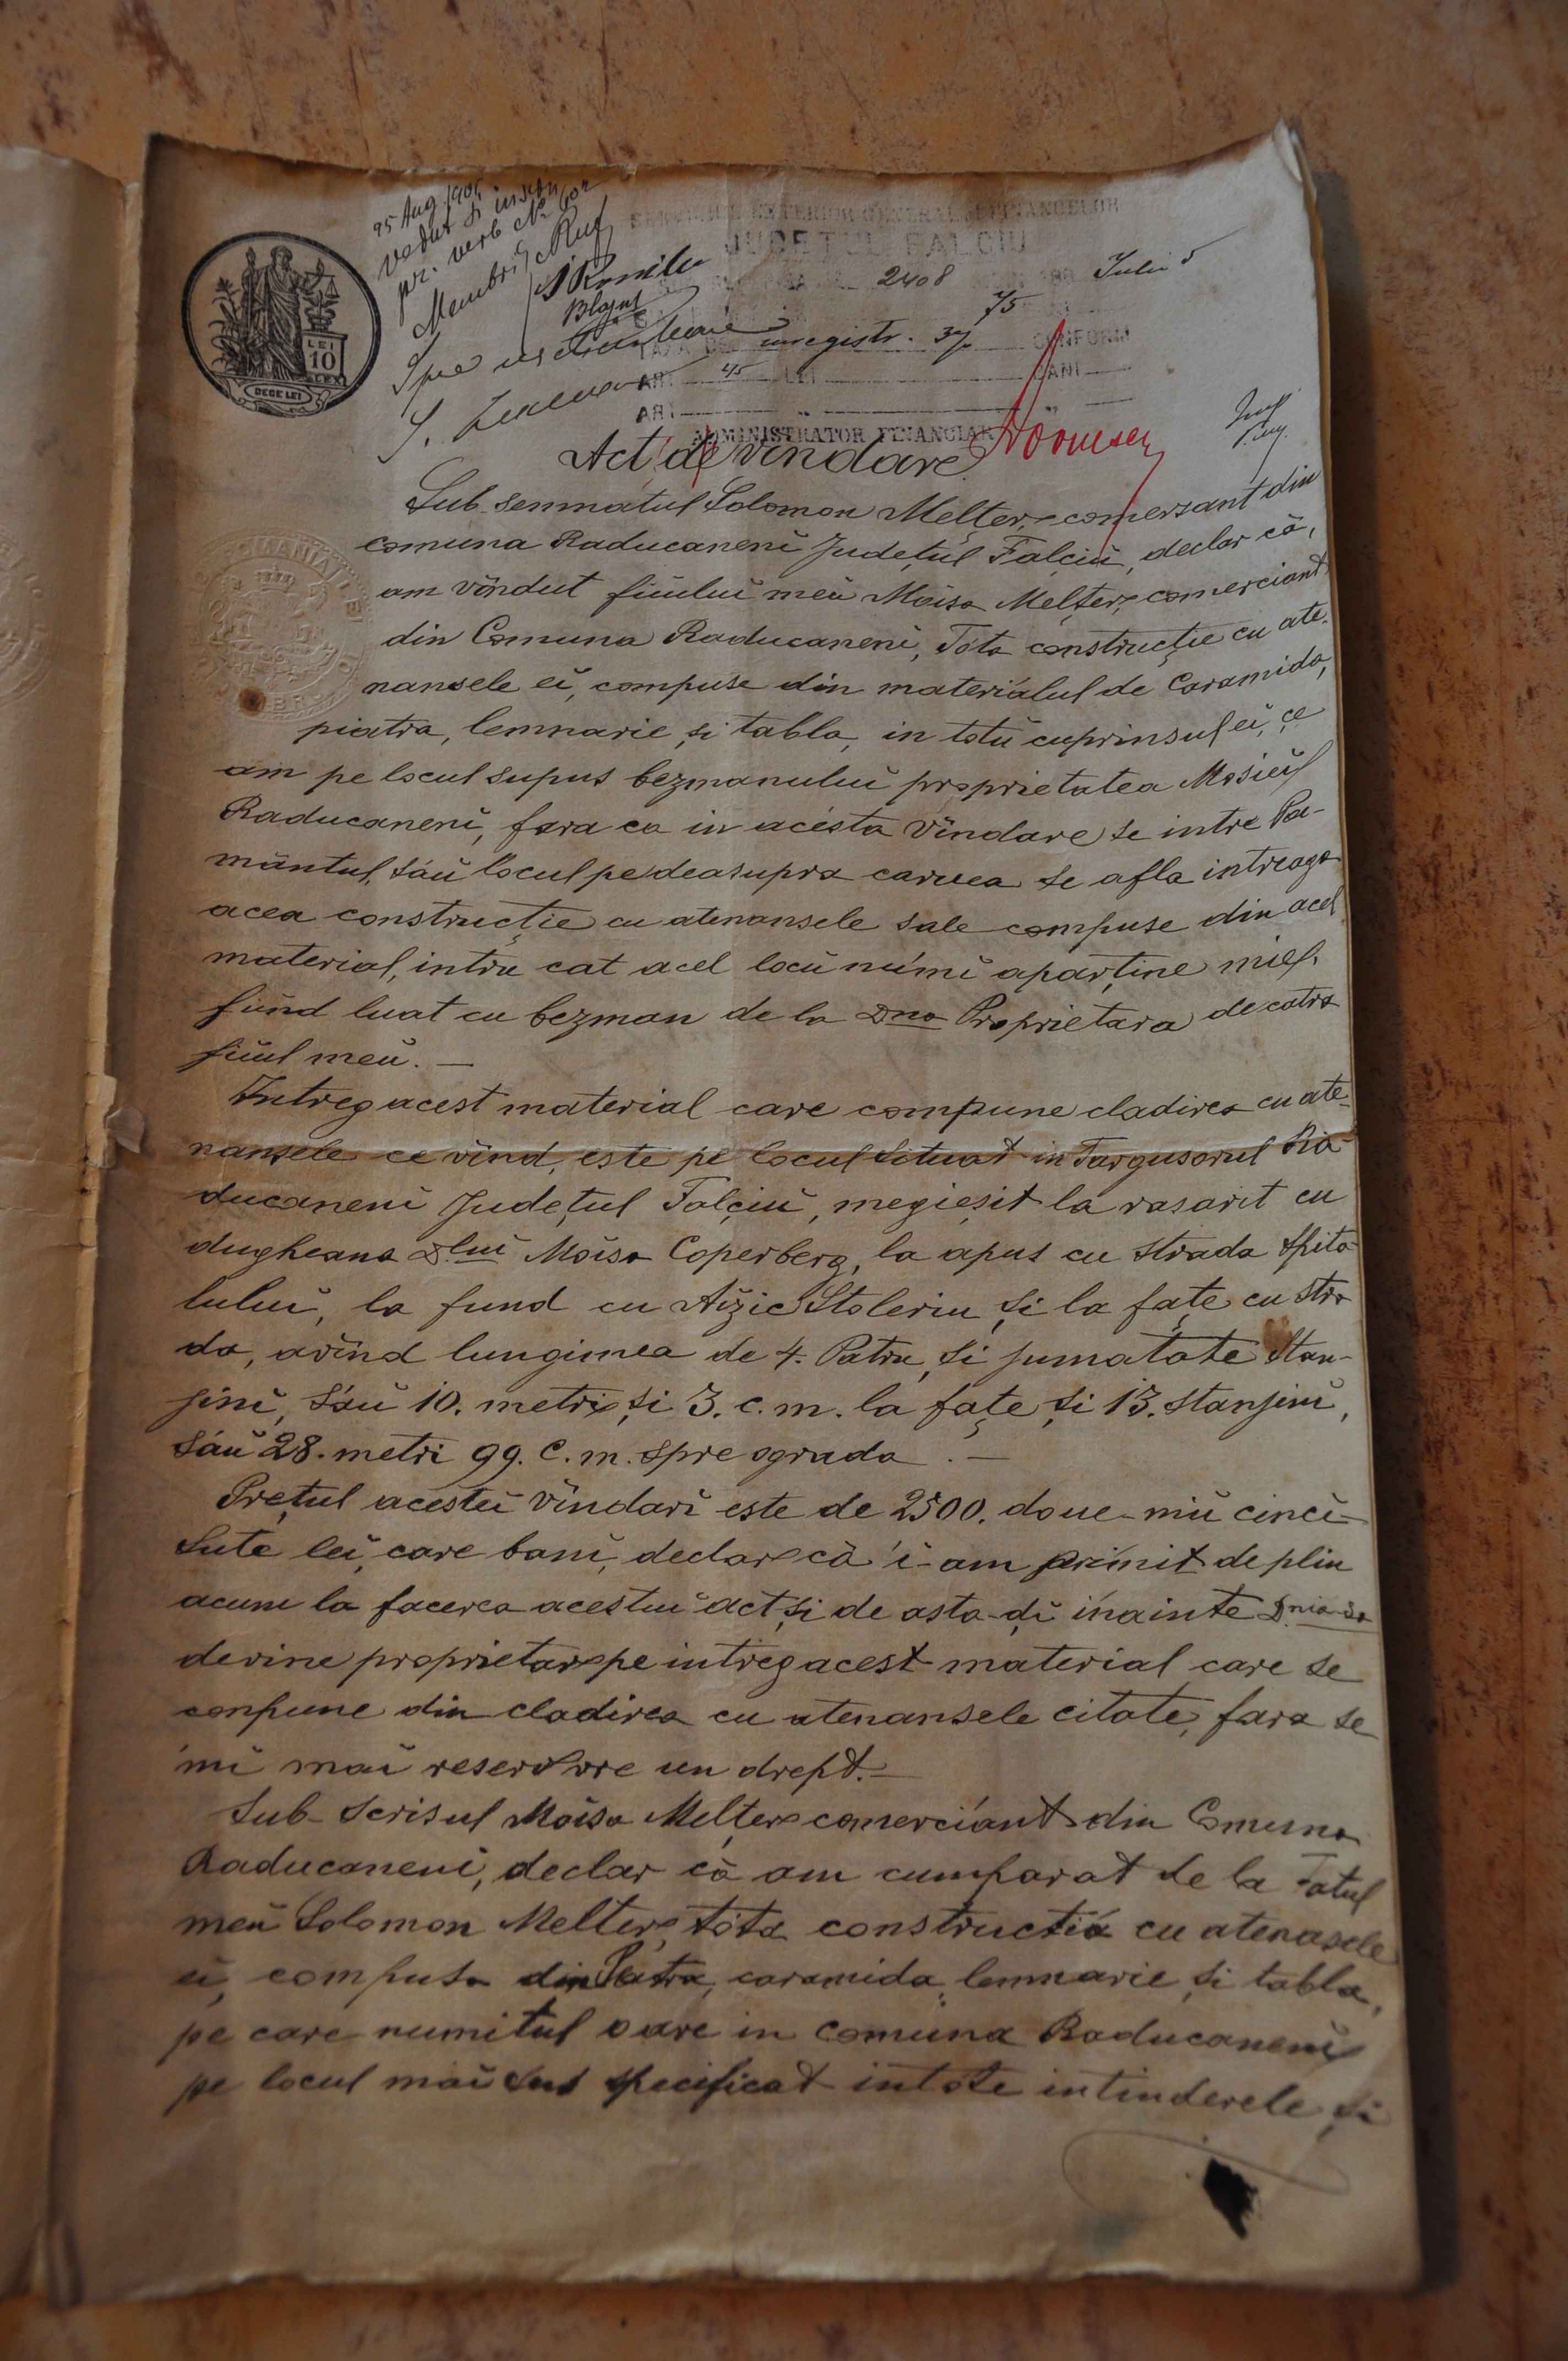 25 Aug 190
vedut si
pr. verb No 602
Membri
JUDETUL FALCIU
2408 Iulie 5
75
inregistr. 3% CONFORM
ART 45 LEI BANI
ART
LEI
10
LEI
DECE LEI
ADMINISTRATOR FINANCIAR
Act de vîndare
Sub semnatul Solomon Melțer, comersant din
comuna Raducanenĭ Județul Falciŭ, declar că,
am vîndut fiiuluĭ meŭ Moisa Melțer, comerciant
din Comuna Raducanenĭ, Tóta construcție cu ate-
nansele eĭ, compuse din materialul de Caramida,
piatra, lemnarie, și tabla, in totŭ cuprinsul eĭ, ce
am pe locul supus bezmanuluĭ proprietatea Mosieĭ
Raducanenĭ, fara ca in acésta vîndare se intre Pa-
mântul, sáŭ locul pe deasupra caruea se afla intreaga
acea construcție cu atenansele sale compuse din acel
material, intru cat acel locŭ nu'mĭ aparține mie,
fiind luat cu bezman de la Dna Proprietara de catra
fiiul meŭ. —
Intreg acest material care compune cladirea cu ate-
nansele ce vînd, este pe locul situat in Targusorul Ră-
ducanenĭ Județul Falciŭ, megieșit la rasarit cu
dugheana D.luĭ Moisa Coperberg, la apus cu strada Spita-
luluĭ, la fund cu Aizic Stoleriu și la fațe cu stra-
da, avînd lungimea de 4. Patru și jumatate Stan-
jinĭ, Sáŭ 10. metri și 3. c.m. la fațe și 13. stanjinĭ,
Sáŭ 28. metri 99. C.m. spre ograda. —
Prețul acesteĭ vîndarĭ este de 2500. doue-miĭ cincĭ-
sute leĭ, care banĭ, declar că i-am primit deplin
acum la facerea acestuĭ act, și de asta-ḑĭ inainte Dnia-sa
devine proprietar pe intreg acest material care se
conpune din cladirea cu atenansele citate, fara se
'mĭ maĭ reserv vre un drept. —
Sub-scrisul Moisa Melțer comerciant din Comuna
Raducanenĭ, declar că am cumparat de la Tatul
meŭ Solomon Melter, tóta constructia cu atenasele
eĭ, compusa din Piatra, caramida, lemnarie și tabla,
pe care numitul o are in Comuna Raducanenĭ
pe locul maĭ sus specificat in tóte intinderele și